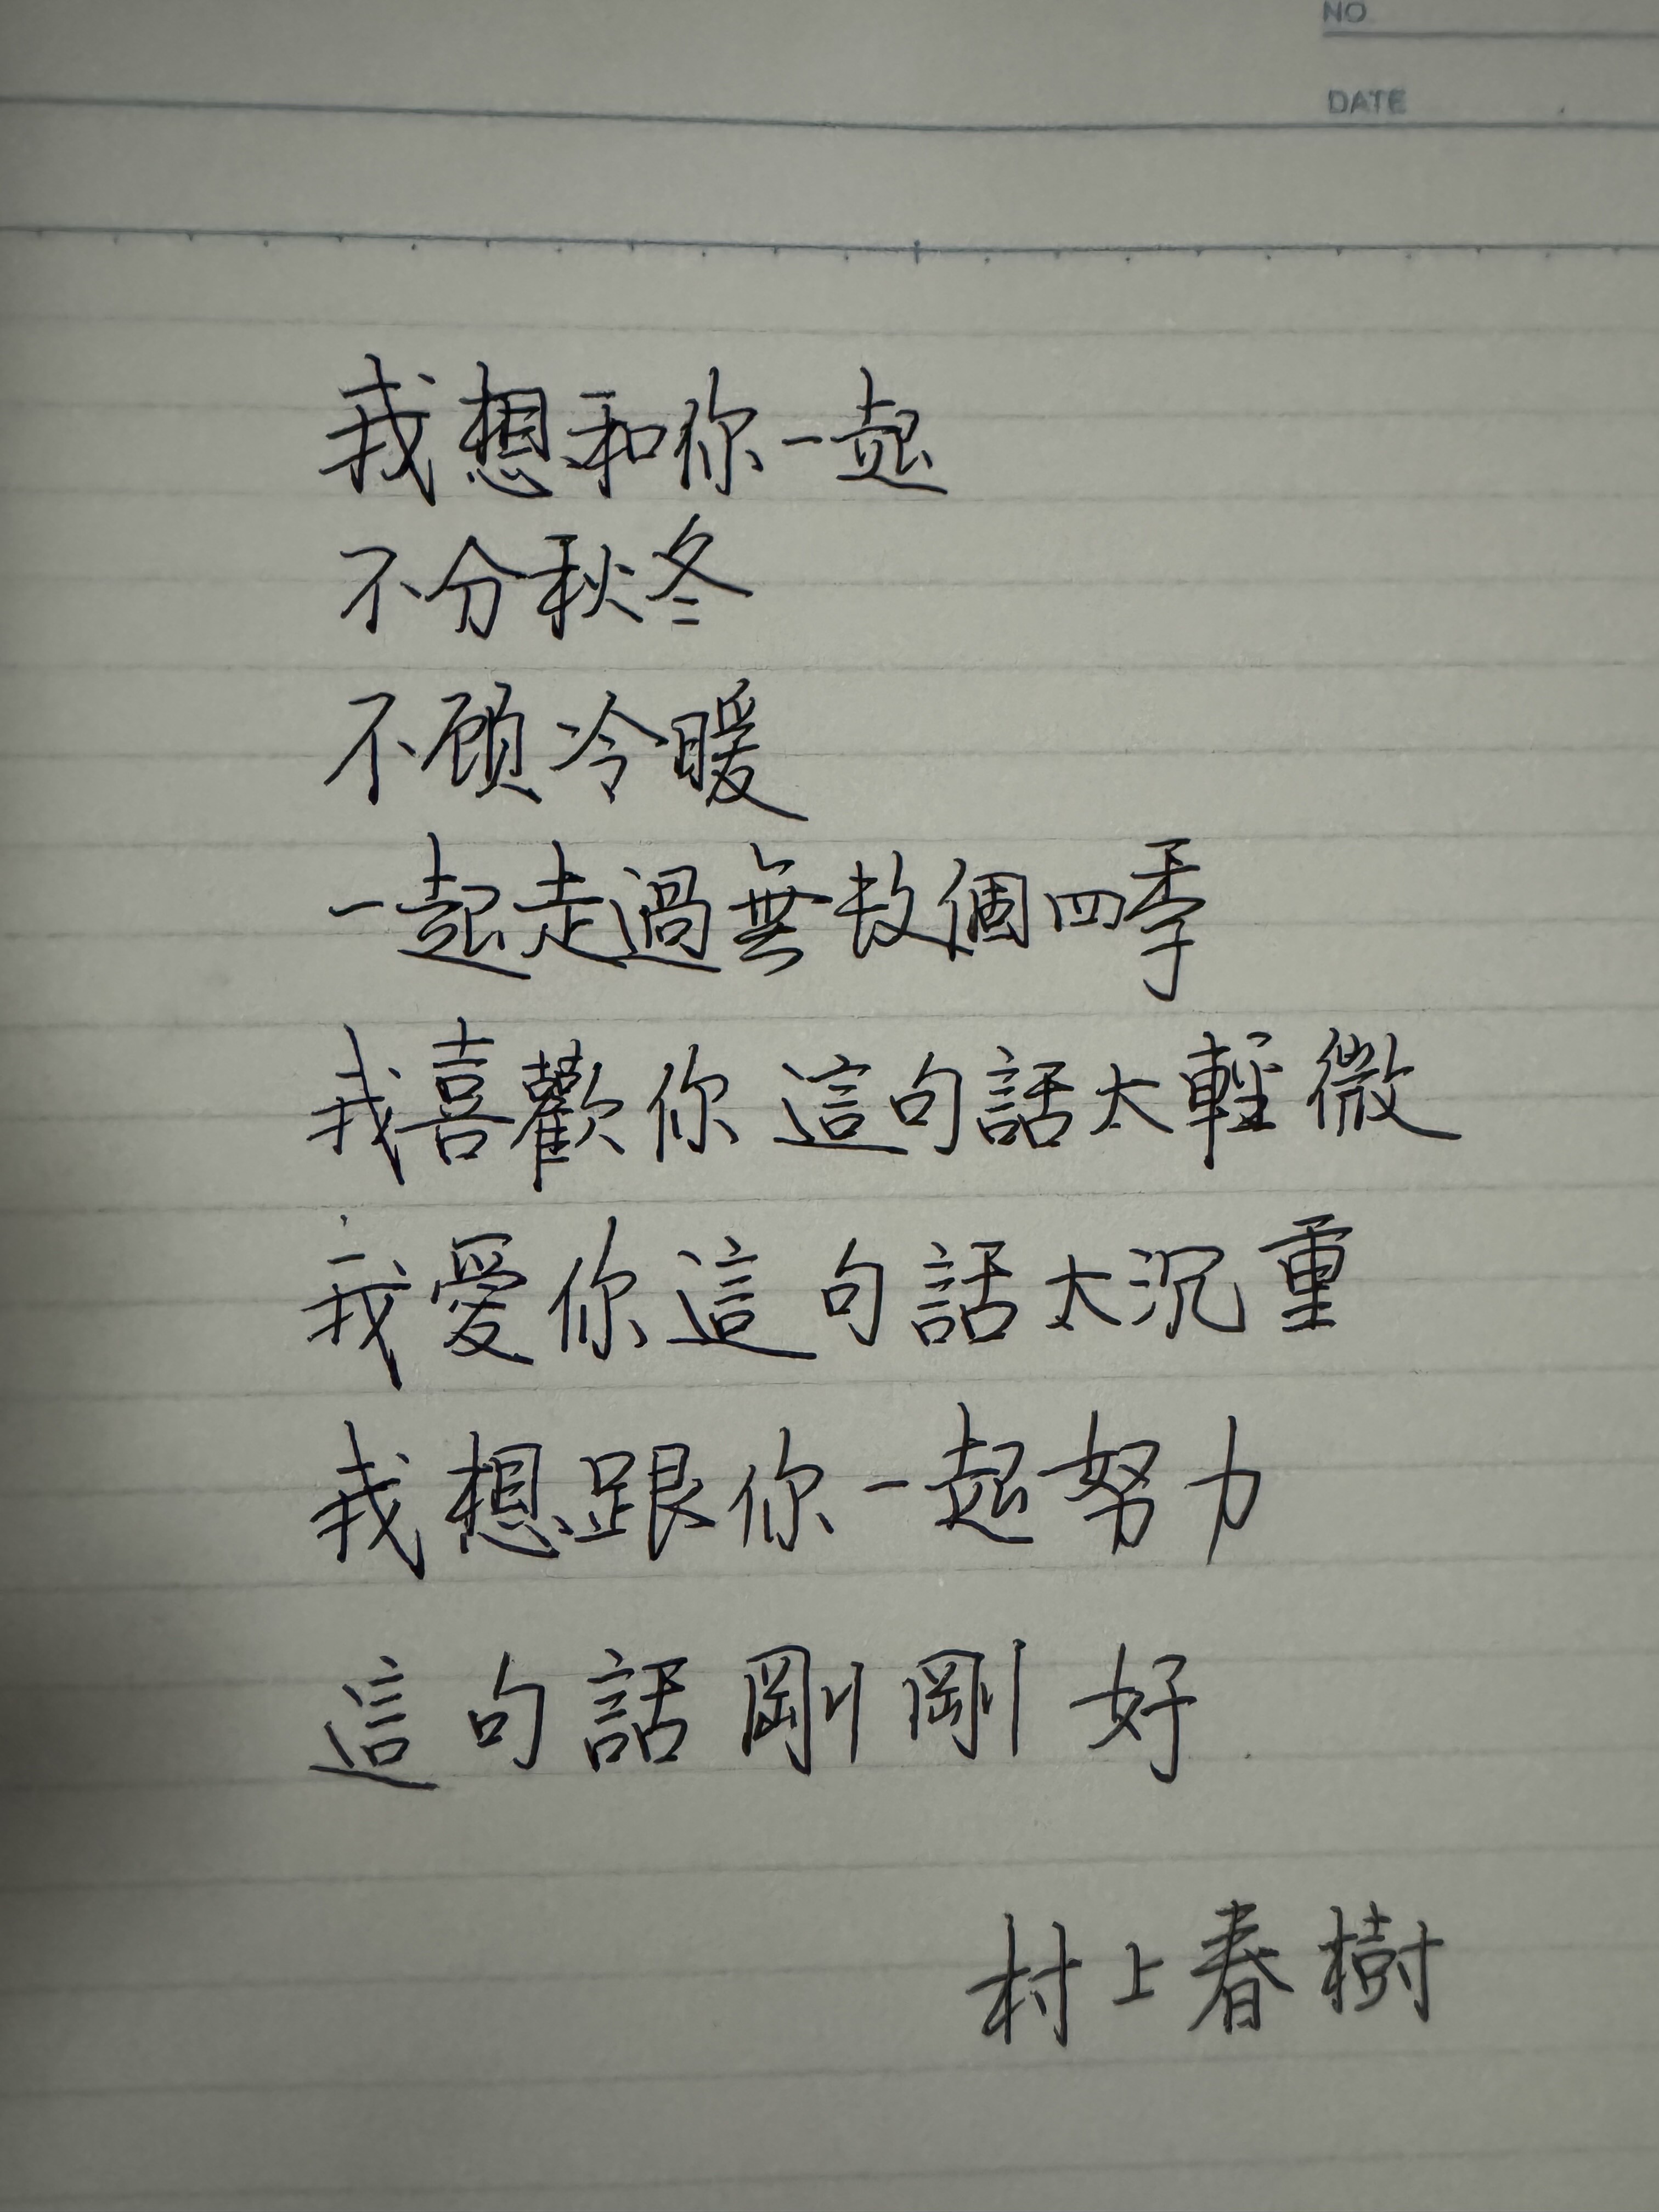 NO
DATE
我想和你一起
不分秋冬
不顾冷暖
一起走過無数個四季
我喜歡你 這句話太輕微
我愛你這句話太沉重
我想跟你一起努力
這句話剛剛好
村上春樹